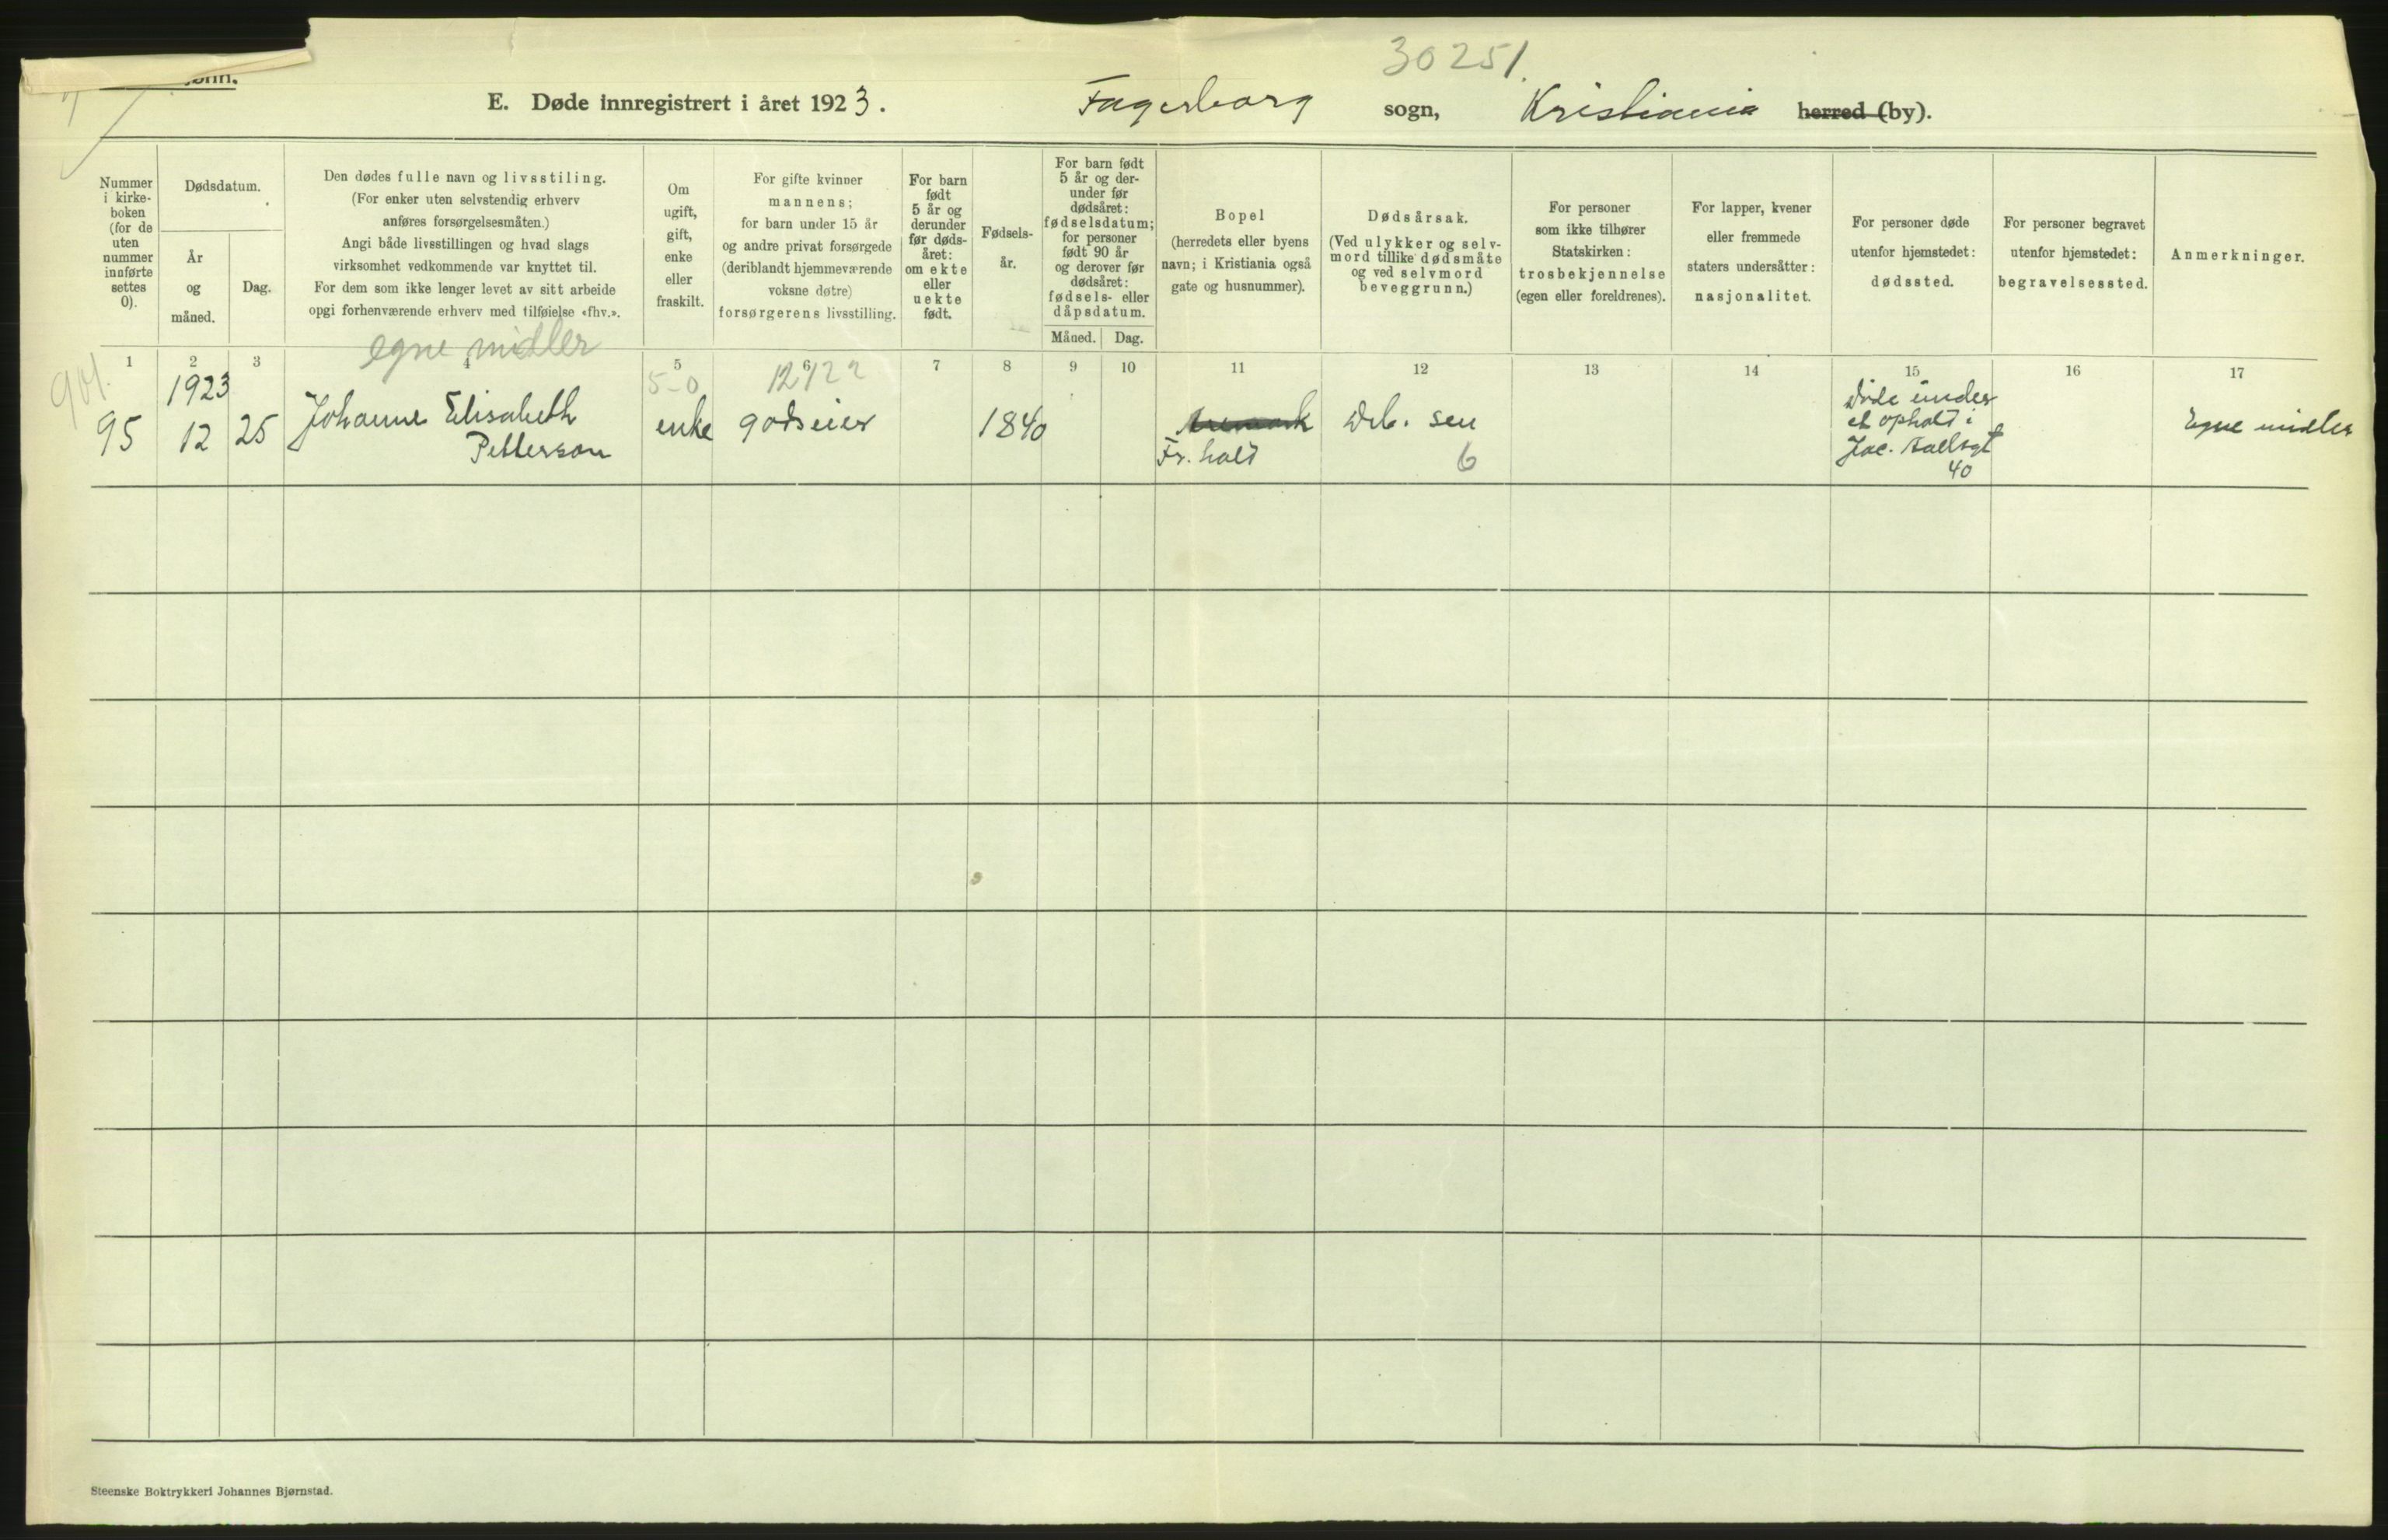 30251.
E. Døde innregistrert i året 1923. Fagerborg sogn, Kristiania herred (by).
Nummer
i kirke-
boken
(for de
uten
nummer
innførte
settes
0).
Dødsdatum.
År
og
måned.
Dag.
Den dødes fulle navn og livsstiling.
(For enker uten selvstendig erhverv
anføres forsørgelsesmåten.)
Angi både livsstillingen og hvad slags
virksomhet vedkommende var knyttet til.
For dem som ikke lenger levet av sitt arbeide
opgi forhenværende erhverv med tilføielse «fhv.».
Om
ugift,
gift,
enke
eller
fraskilt.
For gifte kvinner
mannens;
for barn under 15 år
og andre privat forsørgede
(deriblandt hjemmeværende
voksne døtre)
forsørgerens livsstilling.
For barn
født
5 år og
derunder
før døds-
året:
om ekte
eller
uekte
født.
Fødsels-
år.
For barn født
5 år og der-
under før
dødsåret:
fødselsdatum;
for personer
født 90 år
og derover før
dødsåret:
fødsels- eller
dåpsdatum.
Måned.
Dag.
Bopel
(herredets eller byens
navn; i Kristiania også
gate og husnummer).
Dødsårsak.
(Ved ulykker og selv-
mord tillike dødsmåte
og ved selvmord
beveggrunn.)
For personer
som ikke tilhører
Statskirken:
trosbekjennelse
(egen eller foreldrenes).
For lapper, kvener
eller fremmede
staters undersåtter:
nasjonalitet.
For personer døde
utenfor hjemstedet:
dødssted.
For personer begravet
utenfor hjemstedet:
begravelsessted.
Anmerkninger.
egne midler
1 2 3 4 5 6 7 8 9 10 11 12 13 14 15 16 17
901.
95
1923
12
25
Johanne Elisabeth
Petterson
5-0
enke
12122
godseier
1840
Aremark
Fr.hald
Deb. sen
6
Døde under
et ophold i
Jac. Aallsgt
40
Egne midler
Steenske Boktrykkeri Johannes Bjørnstad.